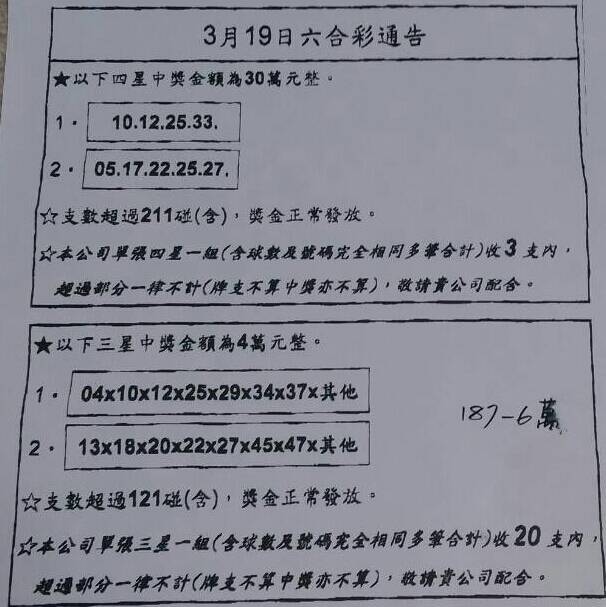 3月19日六合彩通告
★以下四星中獎金額為30萬元整。
1. 10.12.25.33.
2. 05.17.22.25.27.
☆支數超過211碰(含)，獎金正常發放。
☆本公司單張四星一組(含球數及號碼完全相同多筆合計)收3支內，
超過部分一律不計(牌支不算中獎亦不算)，敬請貴公司配合。
★以下三星中獎金額為4萬元整。
1. 04x10x12x25x29x34x37x其他
187-6萬
2. 13x18x20x22x27x45x47x其他
☆支數超過121碰(含)，獎金正常發放。
☆本公司單張三星一組(含球數及號碼完全相同多筆合計)收20支內，
超過部分一律不計(牌支不算中獎亦不算)，敬請貴公司配合。